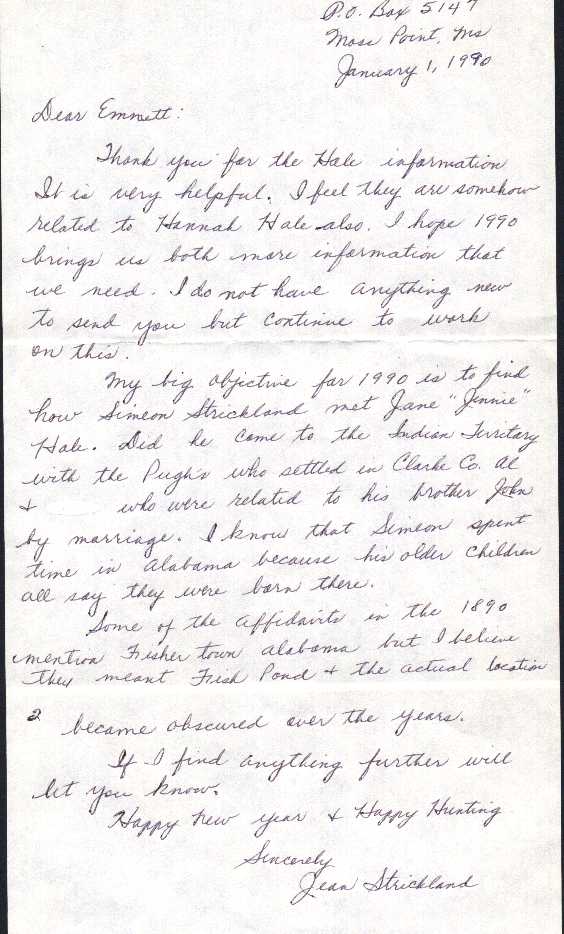 P.O. Box 5147
Moss Point, Ms
January 1, 1990
Dear Emmett:
Thank you for the Hale information
It is very helpful. I feel they are somehow
related to Hannah Hale also. I hope 1990
brings us both more information that
we need. I do not have anything new
to send you but continue to work
on this.
My big objective for 1990 is to find
how Simeon Strickland met Jane "Jennie"
Hale. Did he come to the Indian Territory
with the Pugh's who settled in Clarke Co. Al
& who were related to his brother John
by marriage. I know that Simeon spent
time in Alabama because his older children
all say they were born there.
Some of the affidavits in the 1890
mention Fisher town alabama but I believe
they meant Fish Pond & the actual location
2 became obscured over the years.
If I find anything further will
let you know.
Happy New year & Happy Hunting
Sincerely
Jean Strickland